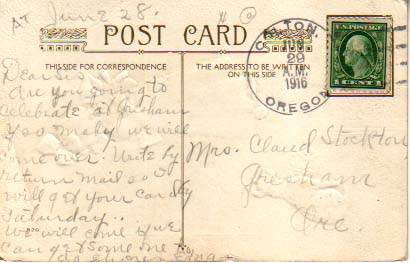 June 28.
POST CARD
THIS SIDE FOR CORRESPONDENCE
THE ADDRESS TO BE WRITTEN
ON THIS SIDE
TON,
29
A.M.
1916
OREGON
1 CENT 1
Dear Sis
Are you going to
celebrate at Gresham
you maby we will
come over. Write by
return mail so I
will get your card by
Saturday..
We will come if we
can get some one to
do chores
Mrs. Claud Stockton
Gresham
Ore.